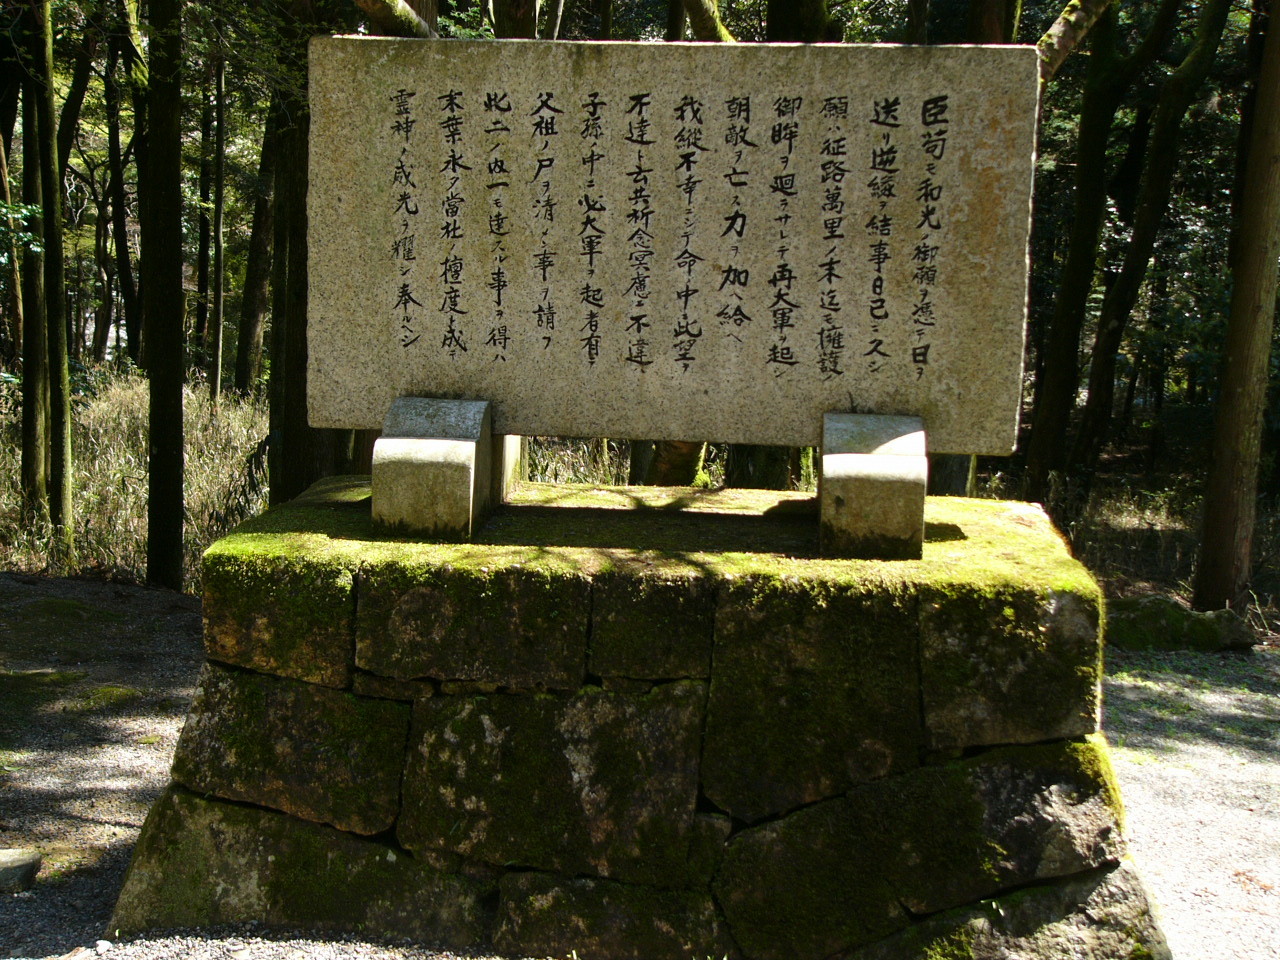 臣苟モ和光ノ御願ヲ憑テ日ヲ
送リ逆縁ヲ結事日已ニ久シ
願ハ征路萬里ノ末迄モ擁護ノ
御眸ヲ廻ラサレテ再大軍ヲ起シ
朝敵ヲ亡ス力ヲ加ヘ給ヘ
我縦不幸ニシテ命ノ中ニ此望ヲ
不達ト云共祈念冥慮ニ不違ハ
子孫ノ中ニ必大軍ヲ起者有テ
父祖ノ尸ヲ清メン事ヲ請フ
此二ノ内一モ達スル事ヲ得ハ
末葉永ク當社ノ檀度ト成テ
霊神ノ威光ヲ耀シ奉ルヘシ